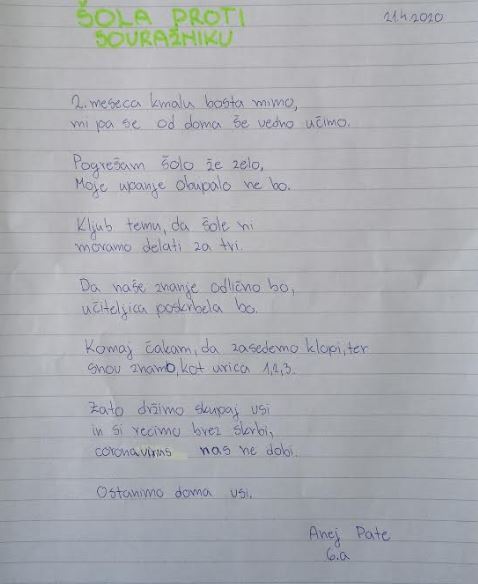 ŠOLA PROTI
SOVRAŽNIKU
21.4.2020
2. meseca kmalu bosta mimo,
mi pa se od doma še vedno učimo.
Pogrešam šolo že zelo,
Moje upanje obupalo ne bo.
Kljub temu, da šole ni
moramo delati za tri.
Da naše znanje odlično bo,
učiteljica poskrbela bo.
Komaj čakam, da zasedemo klopi, ter
snov znamo, kot urica 1,2,3.
Zato držimo skupaj vsi
in si recimo brez skrbi,
coronavirus nas ne dobi.
Ostanimo doma vsi.
Anej Pate
6.a